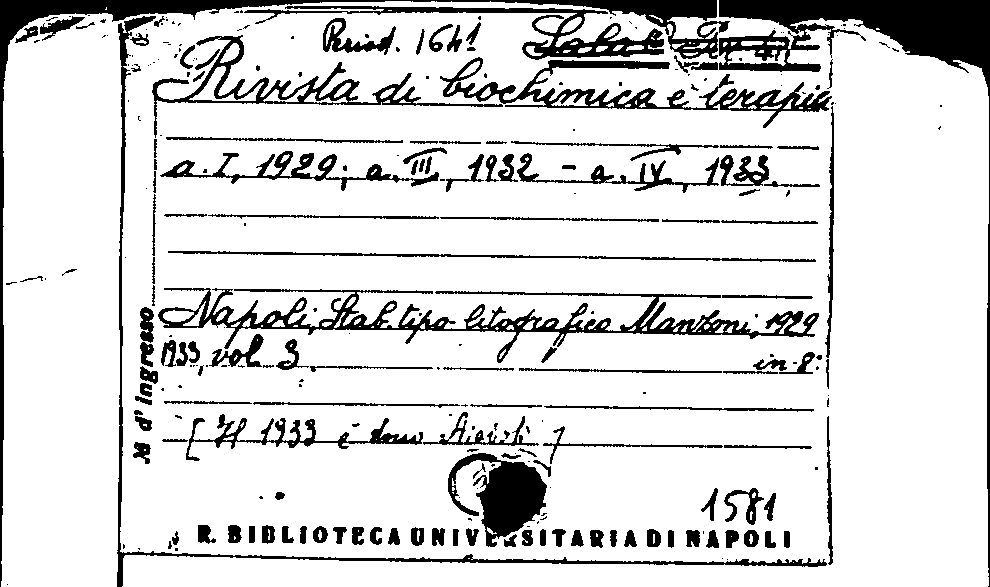 Period. 1641
Rivista di biochimica e terapia
a. I, 1929; a. III, 1932 - a. IV, 1933.
Napoli, Stab. tipo litografico Manzoni, 1929
1933, vol 3. in-8:
[Il 1933 è dono
1581
R. BIBLIOTECA UNIVERSITARIA DI NAPOLI
N d'ingresso